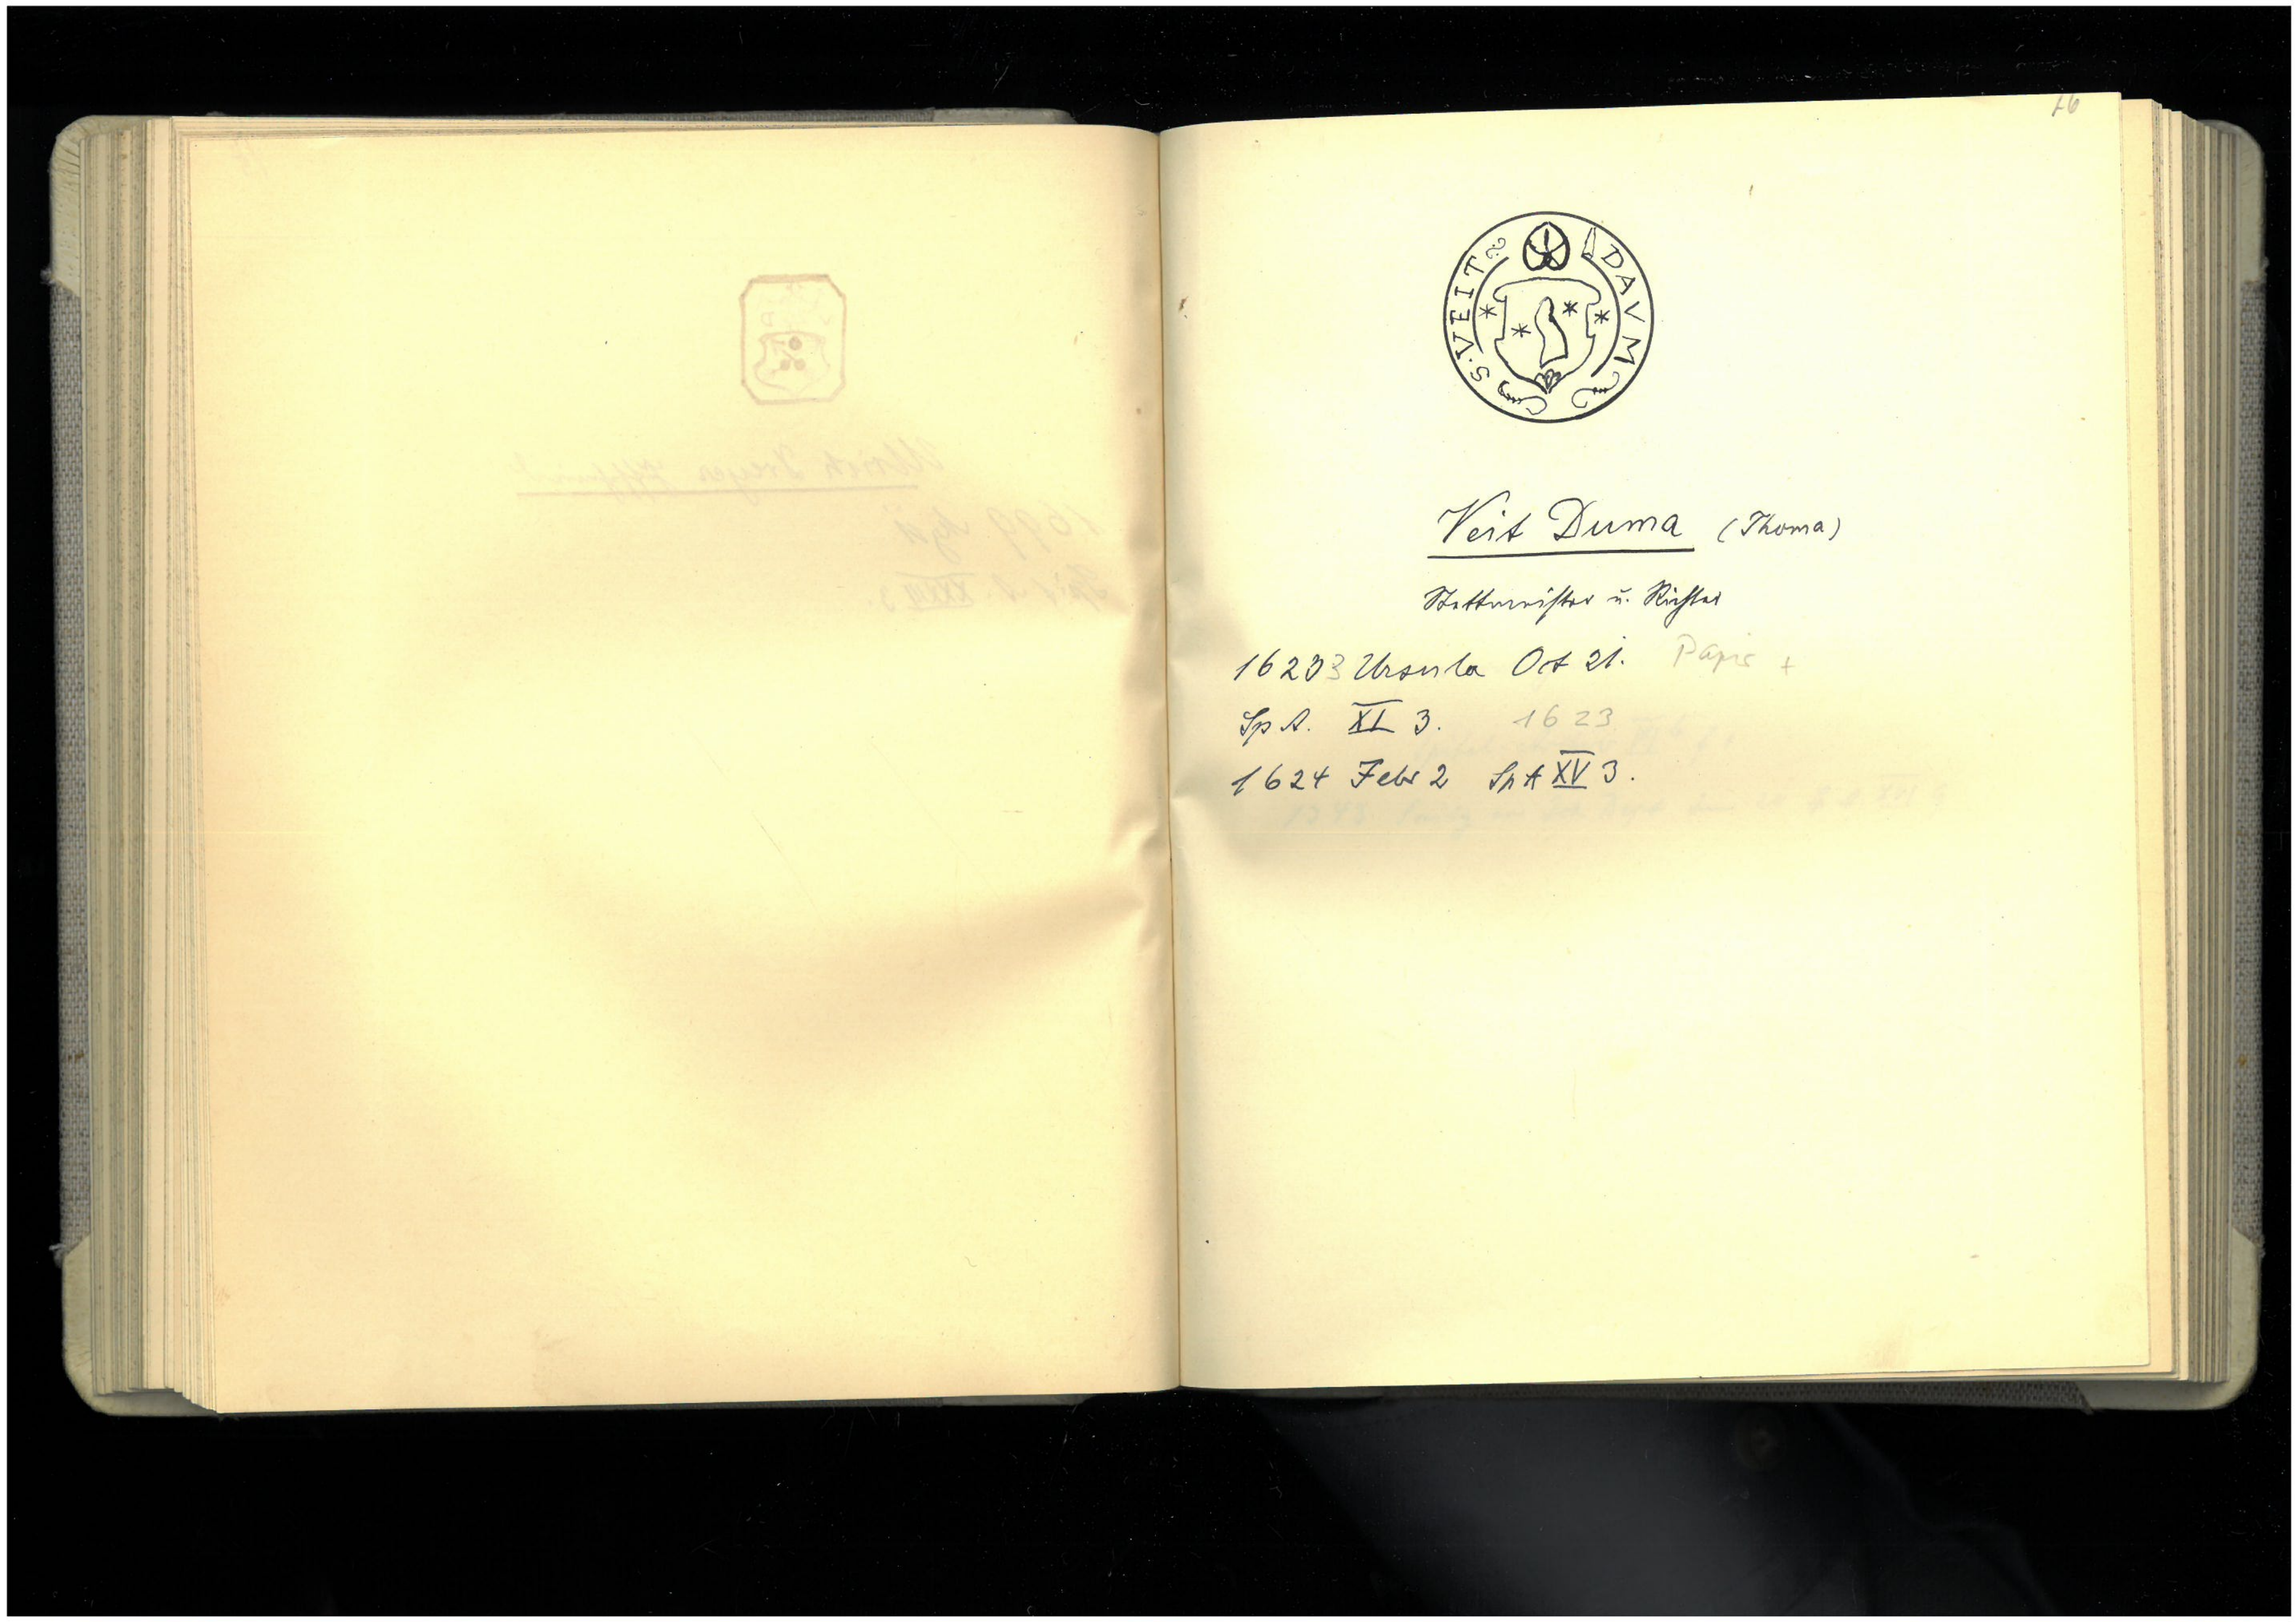 76
S. VEIT DAVM
Veit Duma (Thoma)
Stettmeister u. Richter
1623 3 Ursula Oct 21. Papier +
Sp A. XL 3. 1623
1624 Febr 2 Sp A XV 3.